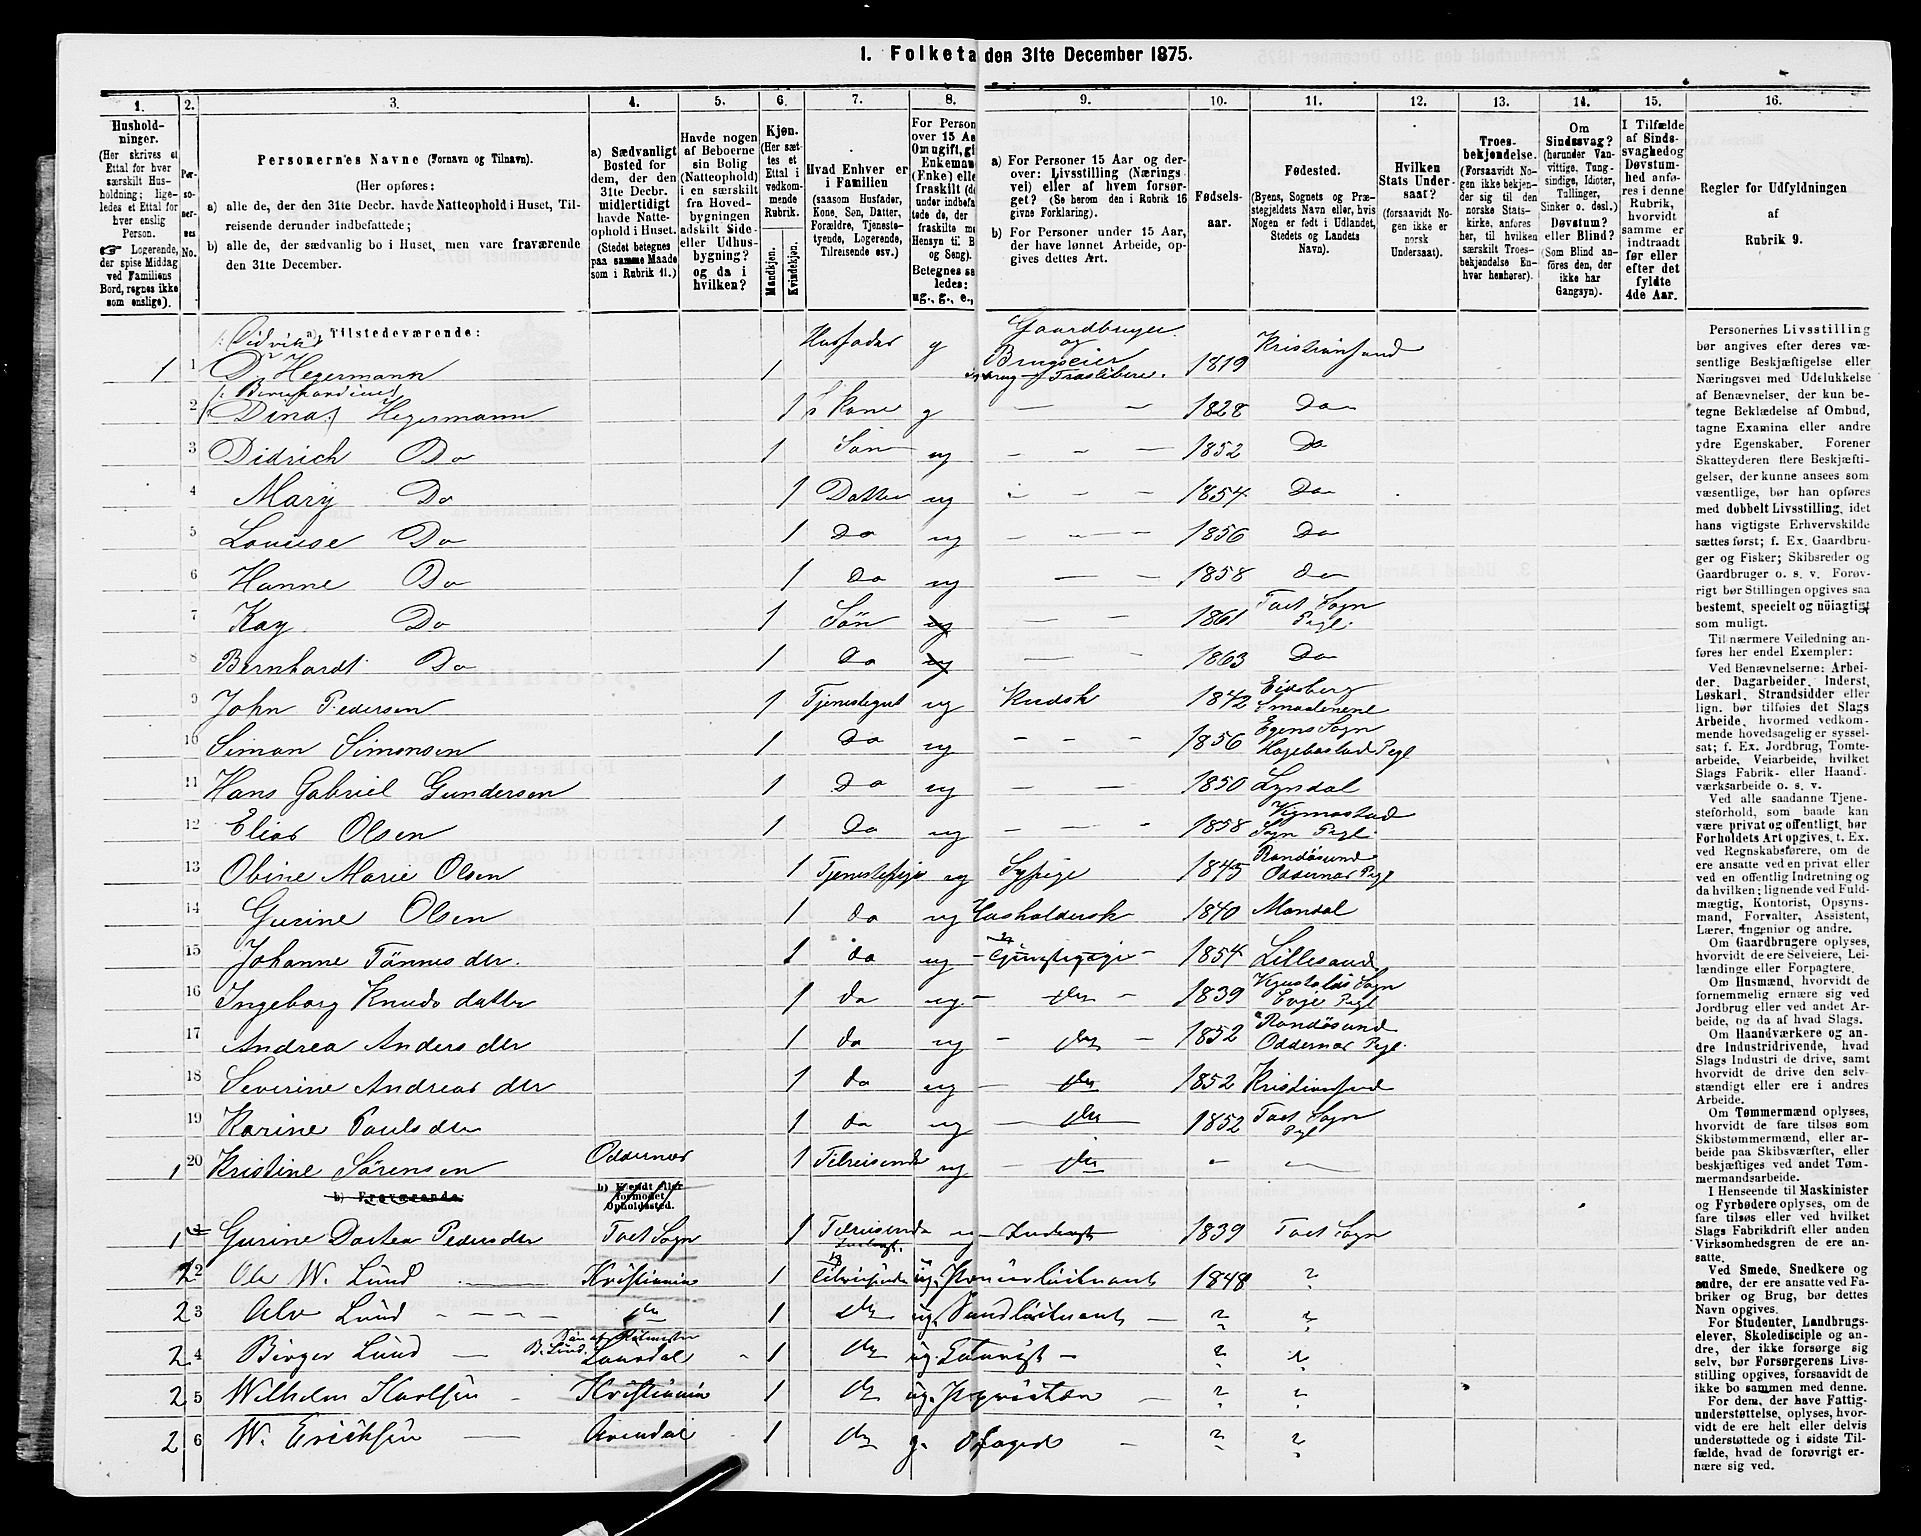 1. Folketa den 31te December 1875.
1. 2. 3. 4. 5. 6. 7. 8. 9. 10. 11. 12. 13. 14. 15. 16.
Hushold-
ninger.
(Her skrives et
Ettal for hver
særskilt Hus-
holdning; lige-
ledes et Ettal for
hver enslig
Person.
☞ Logerende,
der spise Middag
ved Familiens
Bord, regnes ikke
som enslige).
Per-
so-
ner-
nes
No.
Personernes Navne (Fornavn og Tilnavn).
(Her opføres:
a) alle de, der den 31te Decbr. havde Natteophold i Huset, Til-
reisende derunder indbefattede;
b) alle de, der sædvanlig bo i Huset, men vare fraværende
den 31te December.
a) Sædvanligt
Bosted for
dem, der den
31te Decbr.
midlertidigt
havde Natte-
ophold i Huset.
(Stedet betegnes
paa samme Maade
som i Rubrik 11.)
Havde nogen
af Beboerne
sin Bolig
(Natteophold)
i en særskilt
fra Hoved-
bygningen
adskilt Side-
eller Udhus-
bygning?
og da i
hvilken?
Kjøn.
(Her sæt-
tes et
Ettal i
vedkom-
mende
Rubrik.
Mandkjøn.
Kvindekjøn.
Hvad Enhver er
i Familien
(saasom Husfader,
Kone, Søn, Datter,
Forældre, Tjeneste-
tyende, Logerende,
Tilreisende osv.)
For Person
over 15 Aa
Om ugift, gi
Enkeman
(Enke) elle
fraskilt (d
under indbefa
tede de, der
fraskilte m
Hensyn til B
og Seng).
Betegnes sa
ledes:
ug., g., e.,
a) For Personer 15 Aar og der-
over: Livsstilling (Nærings-
vei) eller af hvem forsør-
get? (Se herom den i Rubrik 16
givne Forklaring).
b) For Personer under 15 Aar,
der have lønnet Arbeide, op-
gives dettes Art.
Fødsels-
aar.
Fødested.
(Byens, Sognets og Præ-
stegjeldets Navn eller, hvis
Nogen er født i Udlandet,
Stedets og Landets
Navn).
Hvilken
Stats Under-
saat?
(forsaavidt No-
gen ikke er
norsk
Undersaat).
Troes-
bekjendelse.
(Forsaavidt No-
gen ikke bekjen-
der sig til den
norske Stats-
kirke, anføres
her, til hvilken
særskilt Troes-
bekjendelse En-
hver henhører).
Om
Sindssvag?
(herunder Van-
vittige, Tung-
sindige, Idioter,
Tullinger,
Sinker o. desl.)
Døvstum?
eller Blind?
(Som Blind an-
føres den, der
ikke har
Gangsyn).
I Tilfælde
af Sinds-
svaghed og
Døvstum-
hed anfø-
res i denne
Rubrik,
hvorvidt
samme er
indtraadt
før eller
efter det
fyldte
4de Aar.
Regler for Udfyldningen
af
Rubrik 9.
a) Tilstedeværende:
1 1 D Hegermann 1 Husfader g Gaardbruger og Brugseier 1819 Kristiansand
2 Dina Hegermann 1 Kone g — — 1828 Do
3 Didrich Do 1 Søn ug — — — 1852 Do
4 Mary Do 1 Datter ug — — 1854 Do
5 Louise Do 1 Do ug — — — 1856 Do
6 Hanne Do 1 do ug — — 1858 do
7 Kay Do 1 Søn ug — — 1861 Tvet Sogn Pgl.
8 Bernhardt Do 1 Do ug — — 1863 Do
9 John Pedersen 1 Tjenestegut ug Kudsk 1842 Eidsberg Smaalenene
10 Simon Simonsen 1 Do ug — — — 1856 Egens Sogn Hegebostad Pgl
11 Hans Gabriel Gundersen 1 Do ug — — — 1850 Lyndal
12 Elias Olsen 1 Do ug — — — 1858 Vigmostad Sogn Pgl.
13 Obine Marie Olsen 1 Tjenestepige ug Sypige 1845 Randøsund Oddernes Pgl
14 Gurine Olsen 1 do ug Husholdersk 1840 Mandal
15 Johanne Tønnesder. 1 do ug 1854 Lillesand
16 Ingeborg Knudsdatter 1 da ug — do — 1839 Sogn Evje Pgl
17 Andrea Andersder 1 do ug — do — 1852 Randøsund Oddernes Pgl.
18 Severine Andreasder 1 do ug — do 1852 Kristiansand
19 Karine Paulsder 1 do ug — do 1852 Tvet Sogn Pgl
1 20 Kristine Sørensen Oddernes 1 Tilreisende ug — do — —
b) Fraværende.
b) Kjendt eller
formodet
Opholdssted.
1 Gurine Dortea Pedersder Tvet Sogn 1 Tilreisende ug 1839 Tvet Sogn
2 2 Ole W. Lund Kristiania 1 Tilreisende ug. Premierløitnant 1848 ?
2 3 Alv Lund — — — do 1 do ug. Secondløitnant — ? ?
2 4 Birger Lund — Laurdal 1 do ug. — ? ?
2 5 Wilhelm Karlsen Kristiania 1 do ug. — ? ?
2 6 W. Ericksen — Arendal 1 do g. — ? ?
Personernes Livsstilling
bør angives efter deres væ-
sentlige Beskjæftigelse eller
Næringsvei med Udelukkelse
af Benævnelser, der kun be-
tegne Beklædelse af Ombud,
tagne Examina eller andre
ydre Egenskaber. Forener
Skatteyderen flere Beskjæfti-
gelser, der kunne ansees som
væsentlige, bør han opføres
med dobbelt Livsstilling, idet
hans vigtigste Erhvervskilde
sættes først; f. Ex. Gaardbru-
ger og Fisker; Skibsreder og
Gaardbruger o. s. v. Forøv-
rigt bør Stillingen opgives saa
bestemt, specielt og nöiagtigt
som muligt.
Til nærmere Veiledning an-
føres her endel Exempler:
Ved Benævnelserne: Arbei-
der, Dagarbeider, Inderst,
Løskarl, Strandsidder eller
lign. bør tilføies det Slags
Arbeide, hvormed vedkom-
mende hovedsagelig er syssel-
sat; f. Ex. Jordbrug, Tomte-
arbeide, Veiarbeide, hvilket
Slags Fabrik- eller Haand-
værksarbeide o. s. v.
Ved alle saadanne Tjene-
steforhold, som baade kan
være privat og offentligt, bør
Forholdets Art opgives, t. Ex.
ved Regnskabsførere, om de
ere ansatte ved en privat eller
ved en offentlig Indretning og
da hvilken; lignende ved Fuld-
mægtig, Kontorist, Opsyns-
mand, Forvalter, Assistent,
Lærer, Ingeniør og andre.
Om Gaardbrugere oplyses,
hvorvidt de ere Selveiere, Lei-
lændinge eller Forpagtere.
Om Husmænd, hvorvidt de
fornemmelig ernære sig ved
Jordbrug eller ved andet Ar-
beide, og da af hvad Slags.
Om Haandværkere og an-
dre Industridrivende, hvad
Slags Industri de drive, samt
hvorvidt de drive den selv-
stændigt eller ere i andres
Arbeide.
Om Tømmermænd oplyses,
hvorvidt de fare tilsøs som
Skibstømmermænd, eller ar-
beide paa Skibsværfter, eller
beskjæftiges ved andet Tøm-
mermandsarbeide.
I Henseende til Maskinister
og Fyrbødere oplyses, om de
fare tilsøs eller ved hvilket
Slags Fabrikdrift eller anden
Virksomhedsgren de ere an-
satte.
Ved Smede, Snedkere og
andre, der ere ansatte ved Fa-
briker og Brug, bør dettes
Navn opgives.
For Studenter, Landbrugs-
elever, Skoledisciple og an-
dre, der ikke forsørge sig
selv, bør Forsørgerens Livs-
stilling opgives, forsaavidt de
ikke bo sammen med denne.
For dem, der have Fattig-
understøttelse, oplyses, hvor-
vidt de ere helt eller delvis
understøttede og i sidste Til-
fælde, hvad de forøvrigt er-
nære sig ved.